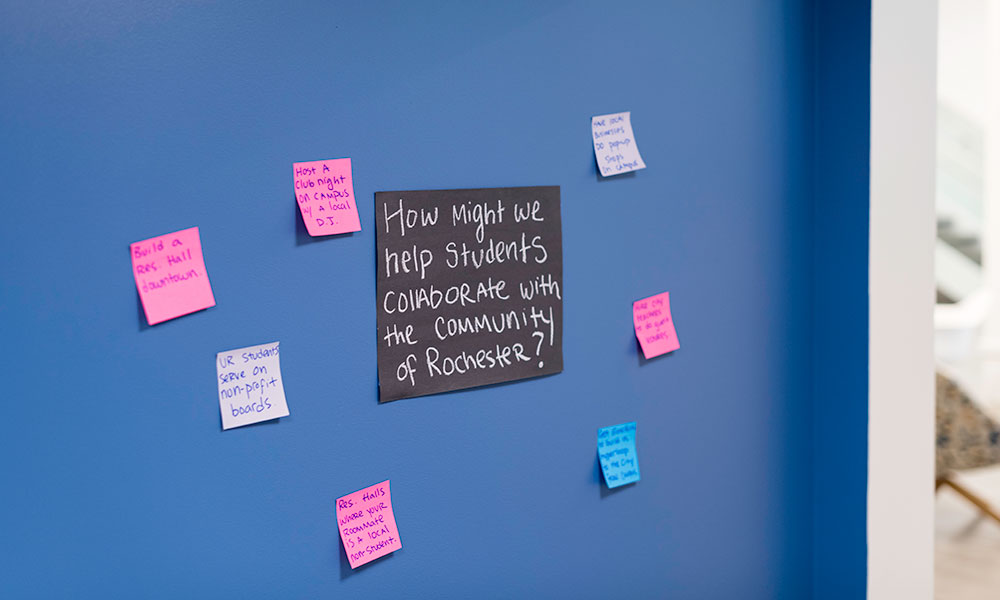 How Might we
help Students
COllABORATE with
the COMMUNITY
of Rochester?
Host A
Club night
on CAMPUS
w/ A local
D.J.
Build a
Res. Hall
downtown.
UR Students
serve on
non-profit
boards.
Res. Halls
where your
Roommate
is a local
non-student.
HAVE LOCAL
Businesses
DO popup
Shops
on campus